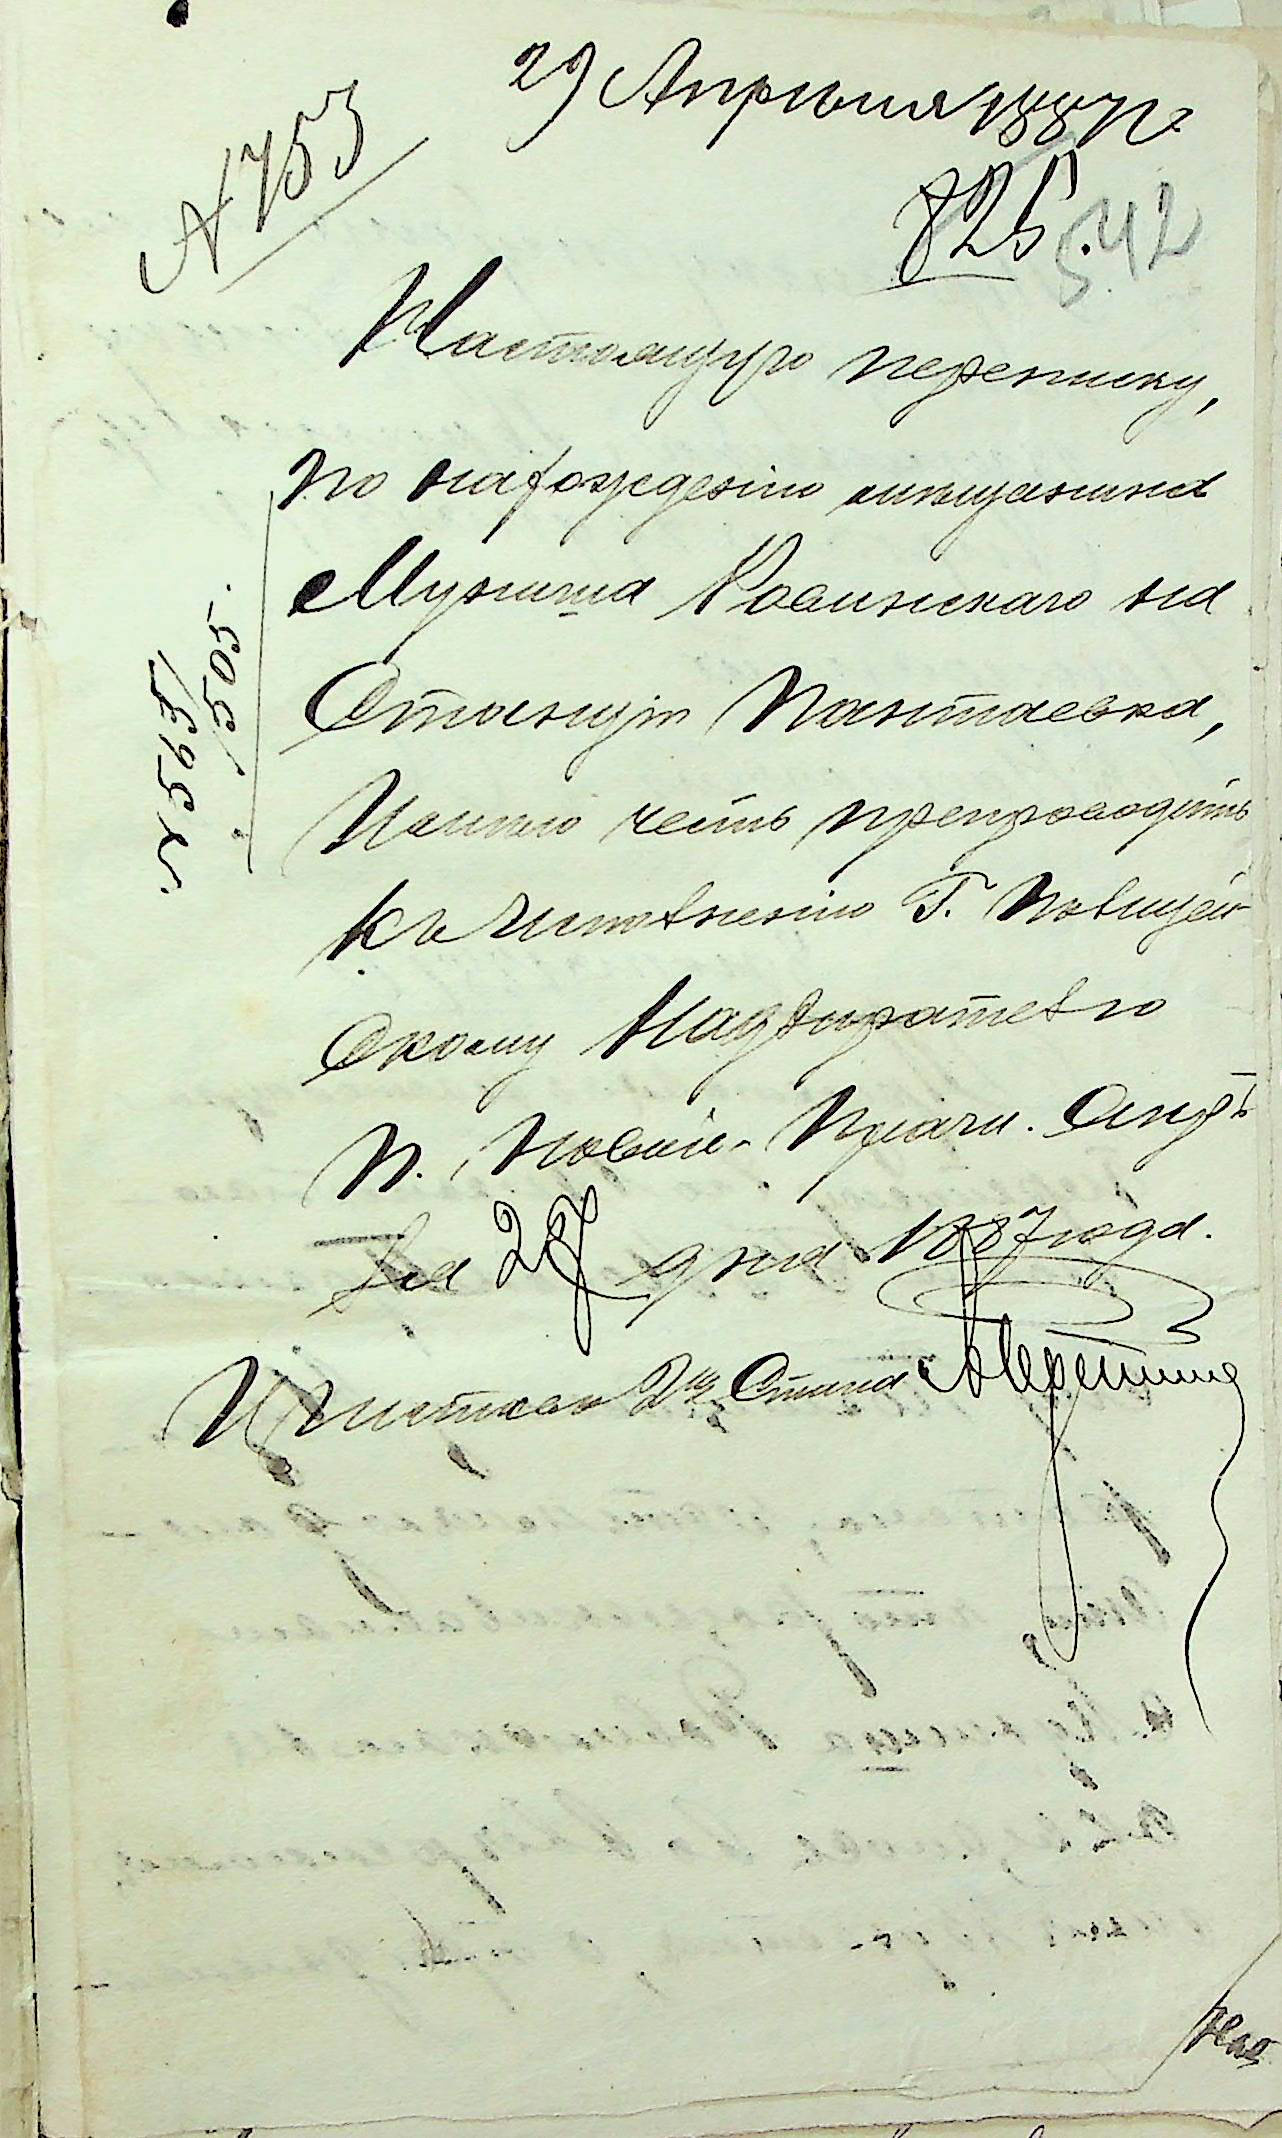 29 Апрѣля 1887 г.
№ 753
825. 542
Настоящую переписку,
по нахожденію мѣщанина
Муниша Ровинскаго на
Станціи Пантаевка,
Имѣю честь препроводить
къ исполненію Г. Полицей-
скому Надзирателю
П. Новой-Праги. Апрѣ
ля 28 дня 1887 года.
Приставъ 2го Стана
№ 3563
505.